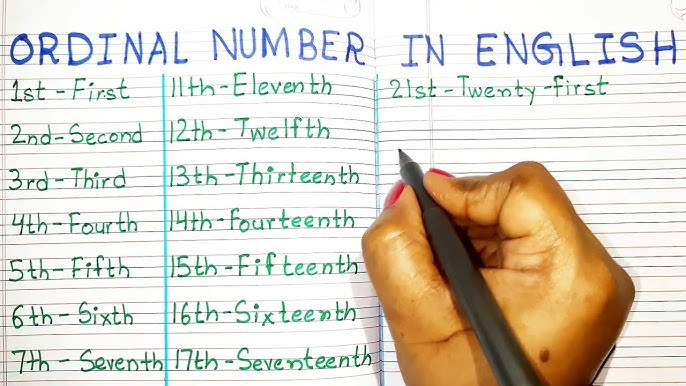 ORDINAL NUMBER IN ENGLISH
1st - First
2nd - Second
3rd - Third
4th - Fourth
5th - Fifth
6th - Sixth
7th - Seventh
11th - Eleventh
12th - Twelfth
13th - Thirteenth
14th - Fourteenth
15th - Fifteenth
16th - Sixteenth
17th - Seventeenth
21st - Twenty - first